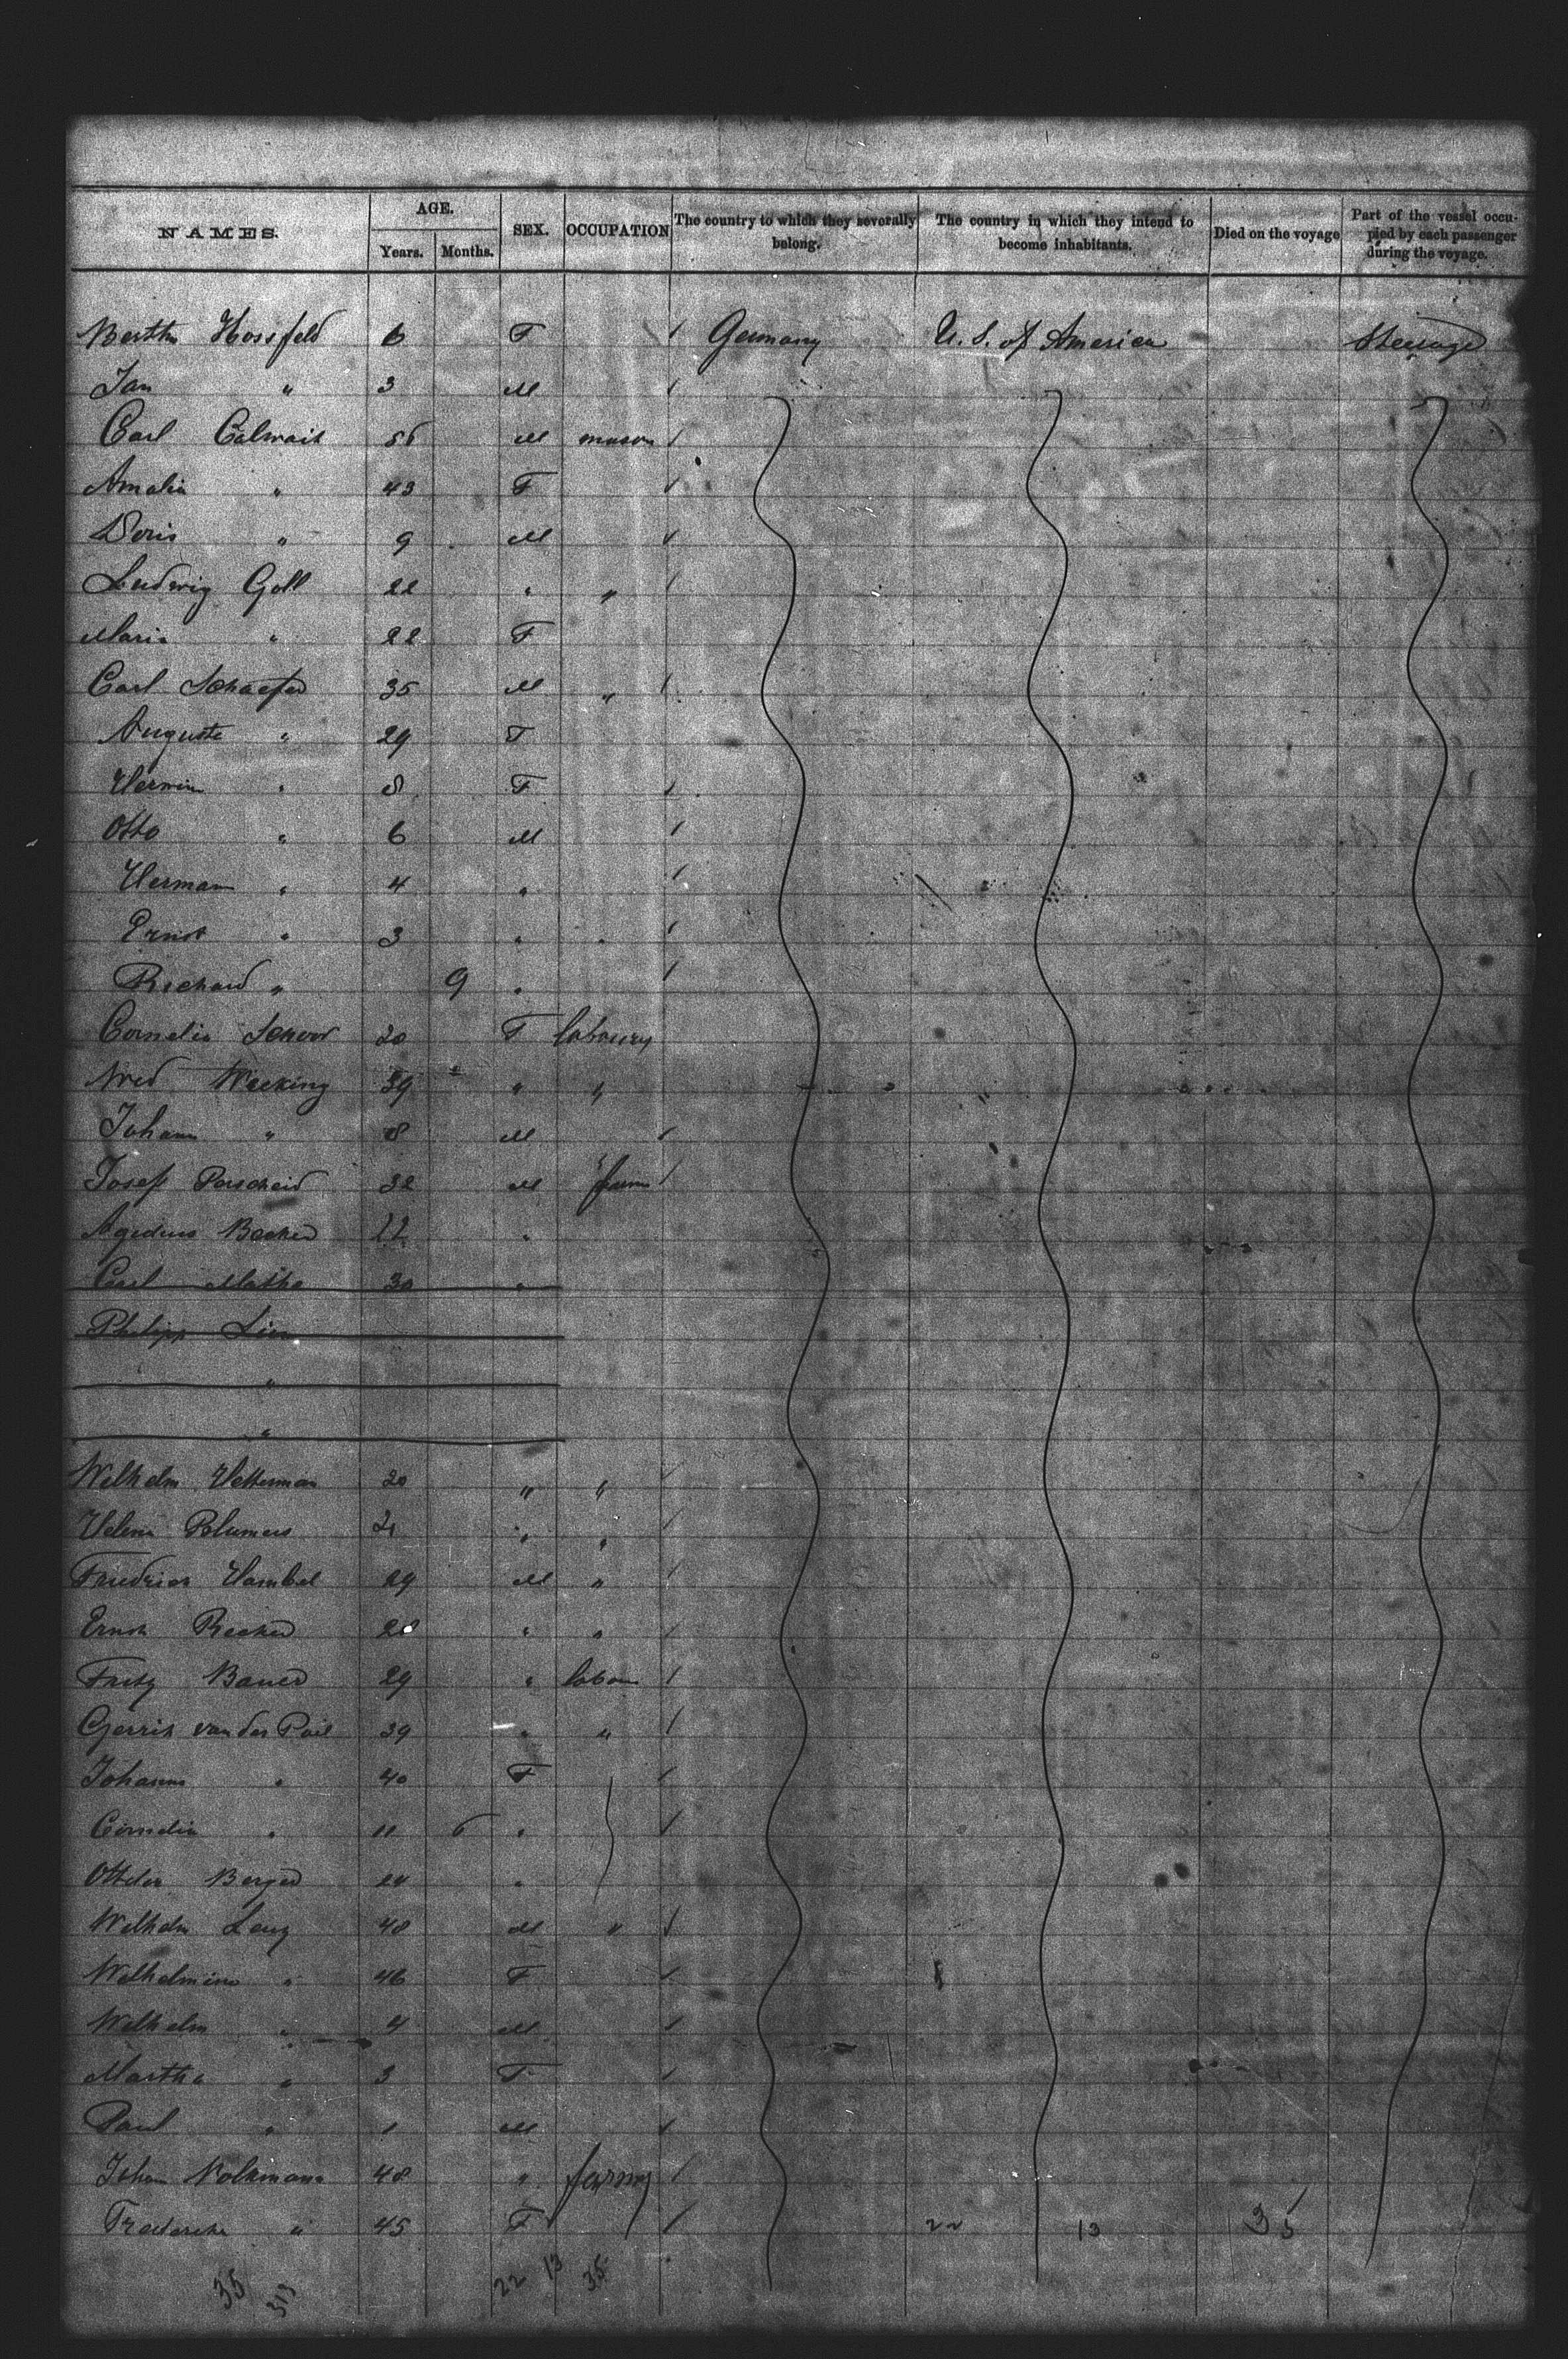 NAMES. AGE. SEX. OCCUPATION The country to which they severally belong. The country in which they intend to become inhabitants. Died on the voyage Part of the vessel occupied by each passenger during the voyage.
Years. Months.
Bertha Hossfeld 6 F Germany U. S. of America Steerage
Jan " 3 M
Carl Calwait 56 M mason
Amalia " 43 F
Doris " 9 M
Ludwig Goll 22 " "
Maria " 22 F
Carl Schaefer 35 M "
Auguste " 29 F
Hermin " 8 F
Otto " 6 M
Herman " 4 "
Ernst " 3 "
Richard " 9 "
Cornelia Schoor 20 F
Wecking 39 " "
Johann " 8 M
Josef Porscheid 32 M farm
Agidius Becker 22 "
Carl Mathe 30 "
Philipp
"
"
Wilhelm Hetterman 20 " "
Helena Blumers 21 " "
Friedrich Hambel 29 M "
Ernst Becker 28 " "
Fritz Bauer 29 " labour
Gerrit van der Poil 39 " "
Johanna " 40 F
Cornelia " 11 6 "
Berger 24 "
Wilhelm Lenz 48 M "
Wilhelmine " 46 F
Wilhelm " 4 M
Martha " 3 F
Paul " 1 M
Johan Volkmann 48 " farmer
Frederike " 45 F 22 13 35
35 313 22 13 35